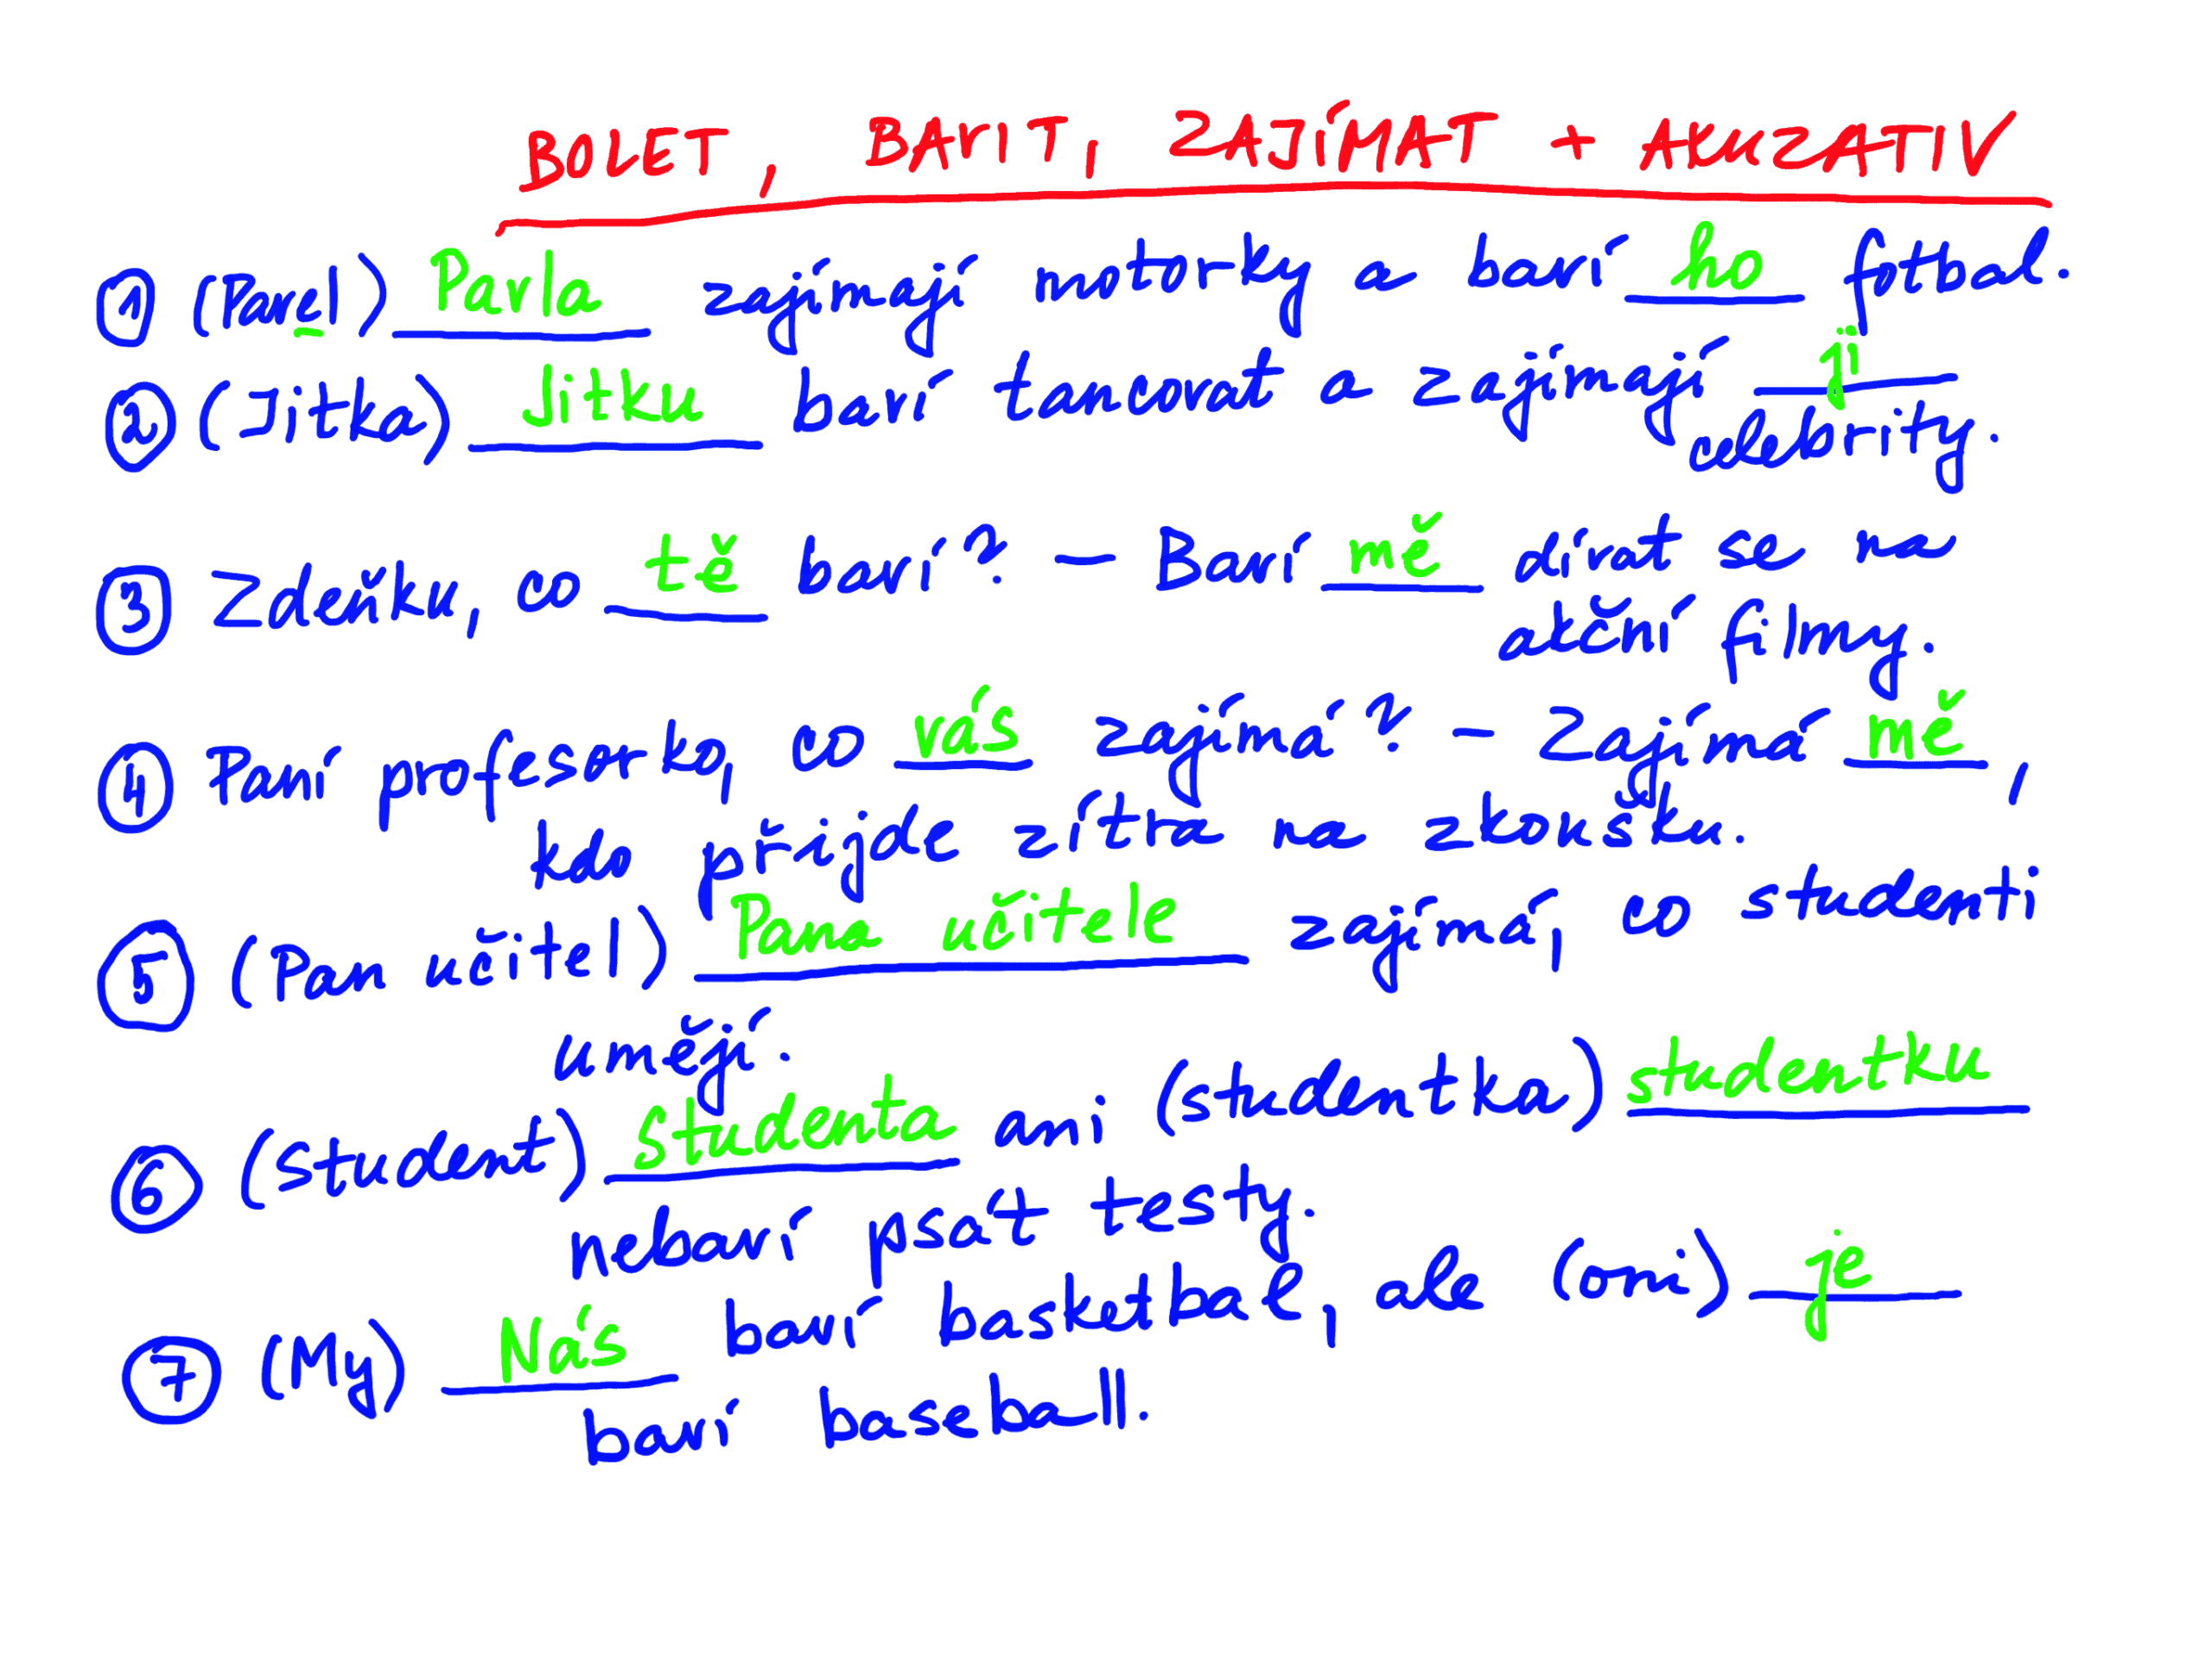 BOLET, BAVIT, ZAJÍMAT + AKUZATIV
① (Pavel) Pavla zajímají motorky a baví ho fotbal.
② (Jitka) Jitku baví tancovat a zajímají ji
celebrity.
③ Zdeňku, co tě baví? – Baví mě dívat se na
akční filmy.
④ Paní profesorko, co vás zajímá? – Zajímá mě,
kdo přijde zítra na zkoušku.
⑤ (Pan učitel) Pana učitele zajímá, co studenti
umějí.
⑥ (student) studenta ani (studentka) studentku
nebaví psát testy.
⑦ (My) Nás baví basketbal, ale (oni) je
baví baseball.